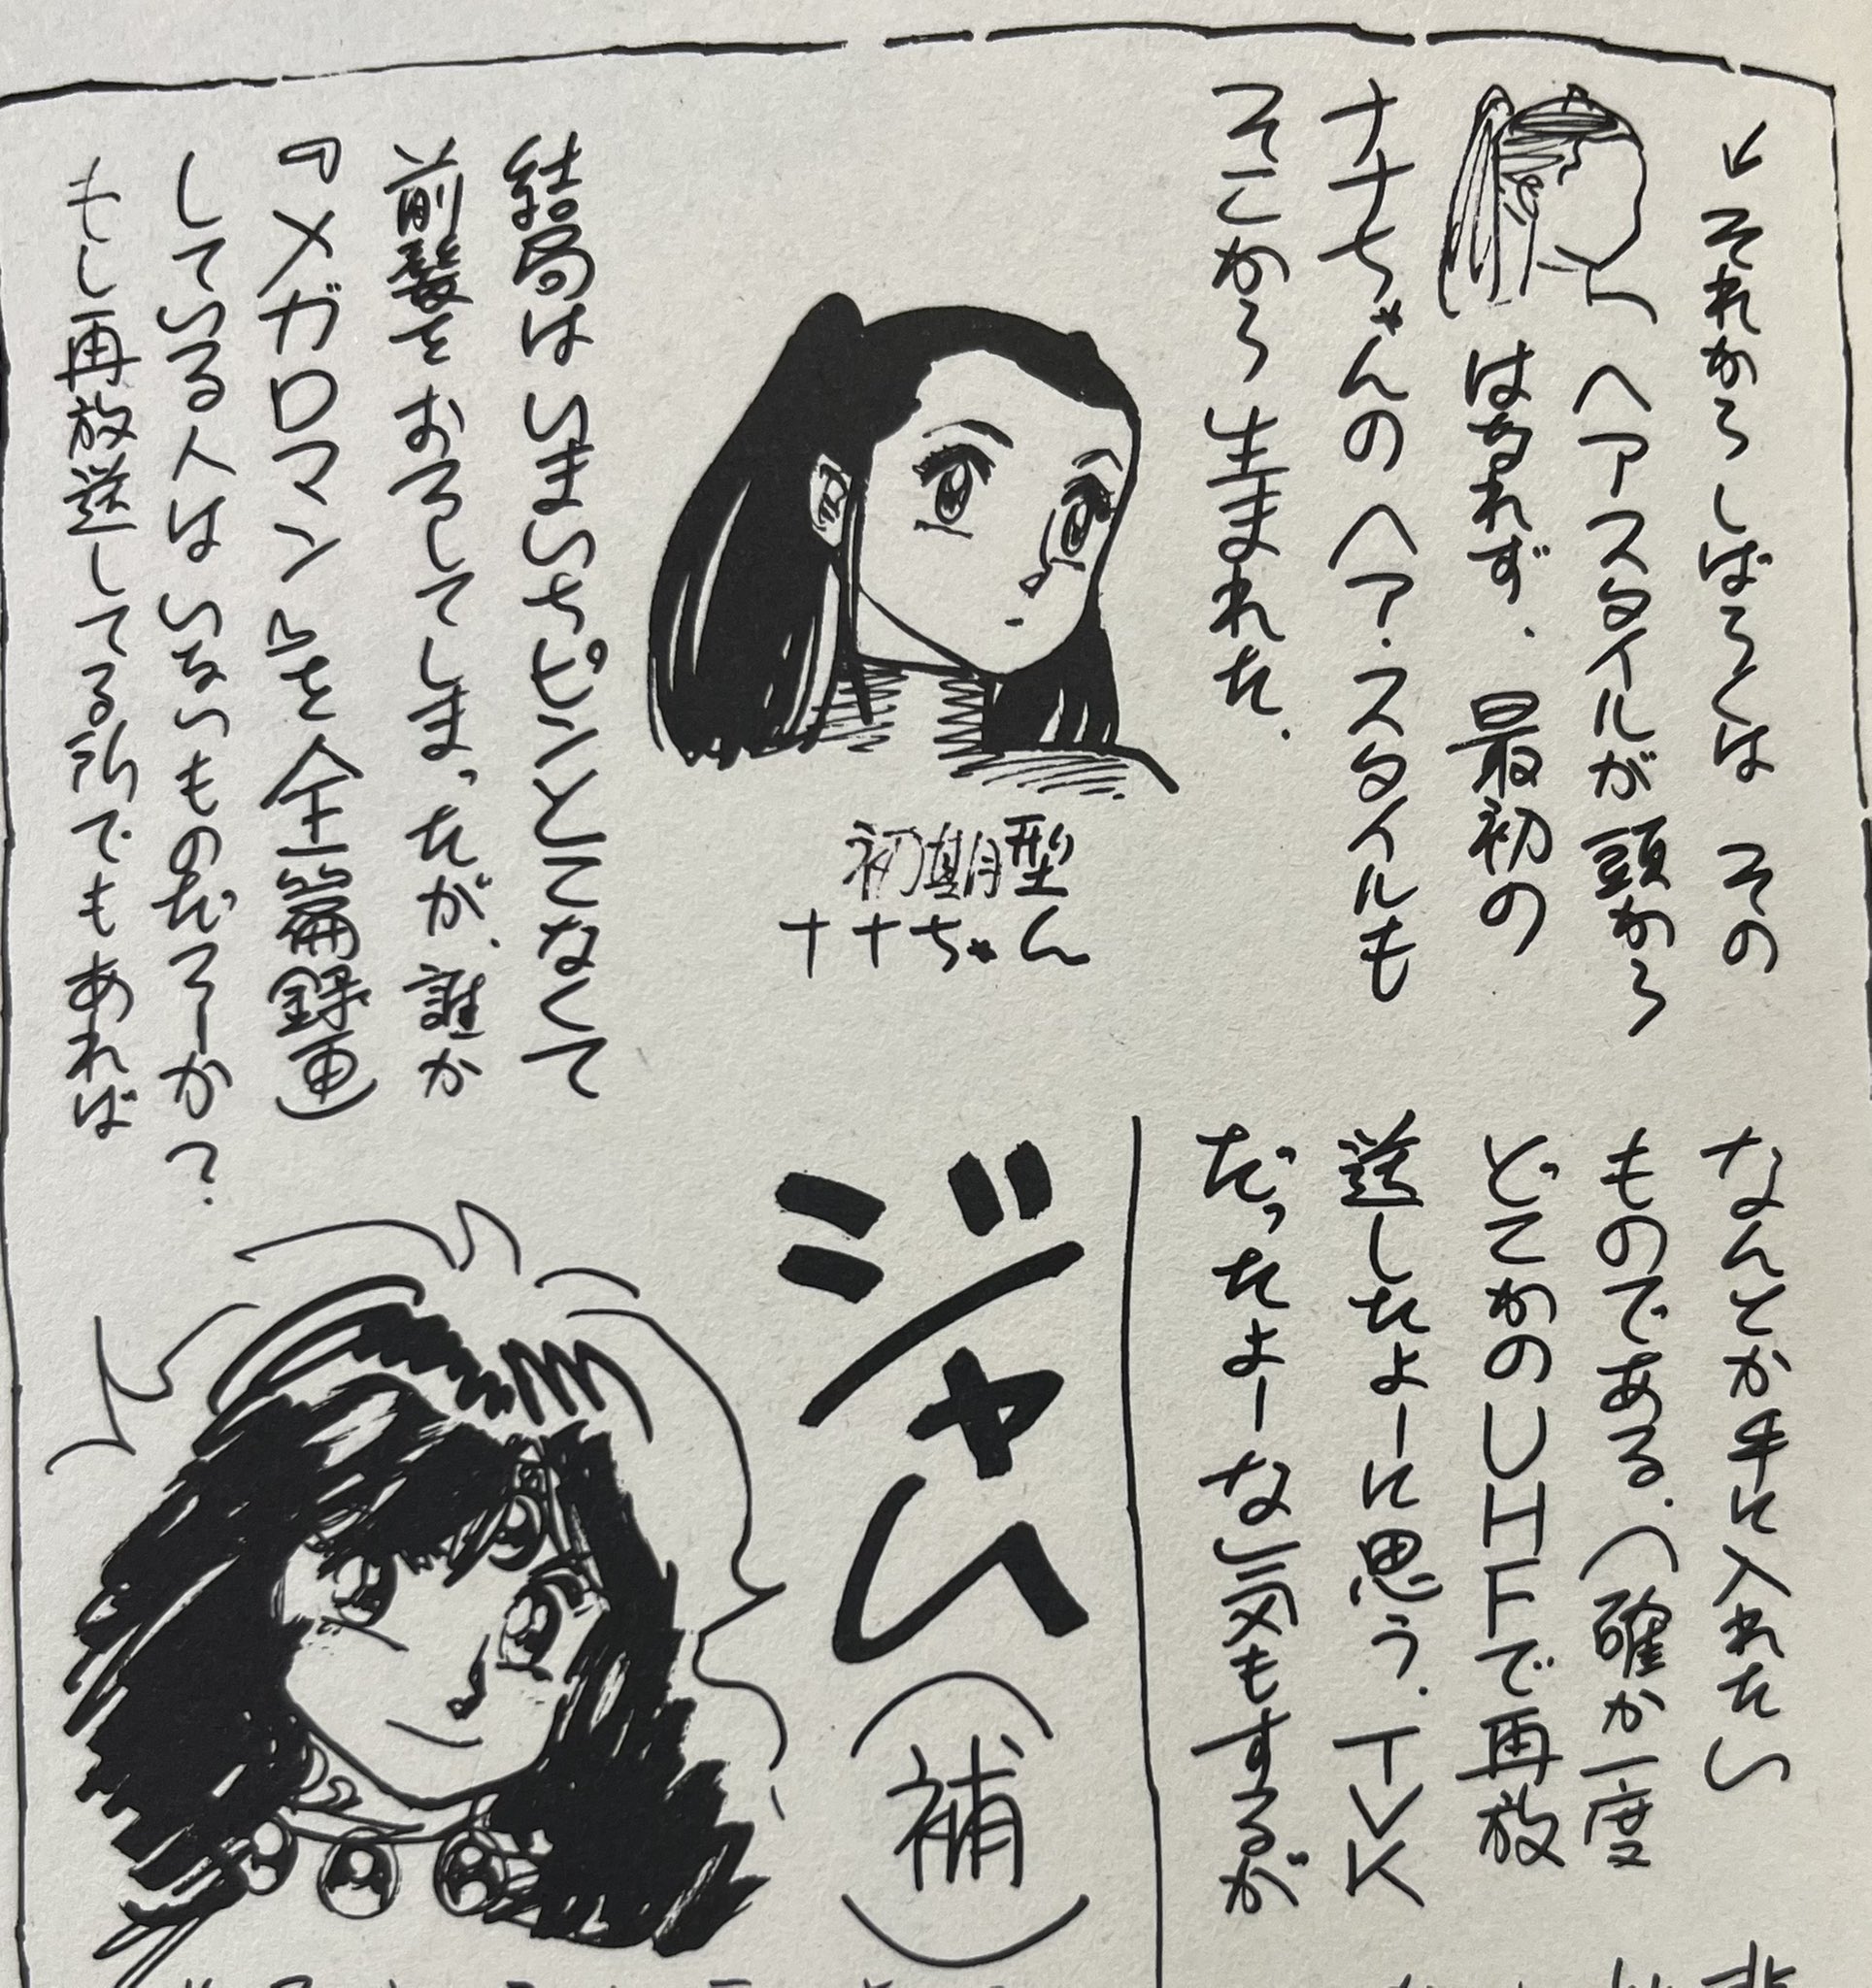 ↓それからしばらくは その
ヘアスタイルが頭から
はなれず、最初の
ナナちゃんのヘア・スタイルも
そこから生まれた.
初期型
ナナちゃん
結局は いまいちピンとこなくて
前髪をおろしてしまったが、誰か
『メガロマン』を全篇録画
している人は いないものだろーか?
もし再放送してる所でもあれば
なんとか手に入れたい
ものである.(確か一度
どこかのUHFで再放
送したよーに思う. TVK
だったよーな気もするが
ジャム
(補)